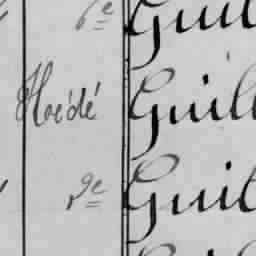 6e Guil
Hoëdé Guill
de Guil